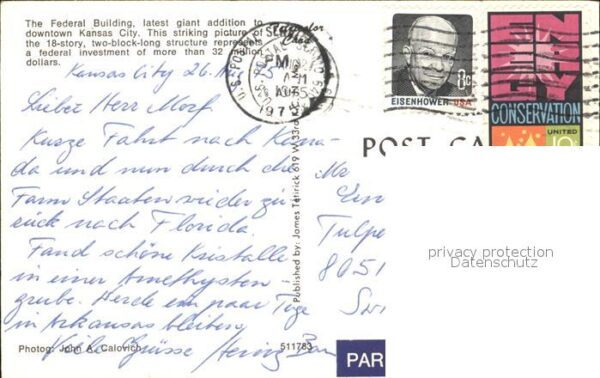 The Federal Building, latest giant addition to
downtown Kansas City. This striking picture of
the 18-story, two-block-long structure represents
a federal investment of more than 32 million
dollars.
Kansas City 26.
Lieber Herr Morf
Kurze Fahrt nach Kana-
da und nun durch die
Farm Staaten wieder zu
rück nach Florida.
Fand schöne Kristalle
in einer Amethysten
grube. Werde ein paar Tage
in Arkansas bleiben
Viele Grüsse Heinz
Photog: John A. Calovich
511783
Published by: James Tetirick 619 W. 33rd
U.S. POSTAL SERVICE
PM
AUG
1975
8c
EISENHOWER USA
CONSERVATION
UNITED
POST CA
Mr
Tulpe
8051
privacy protection
Datenschutz
PAR